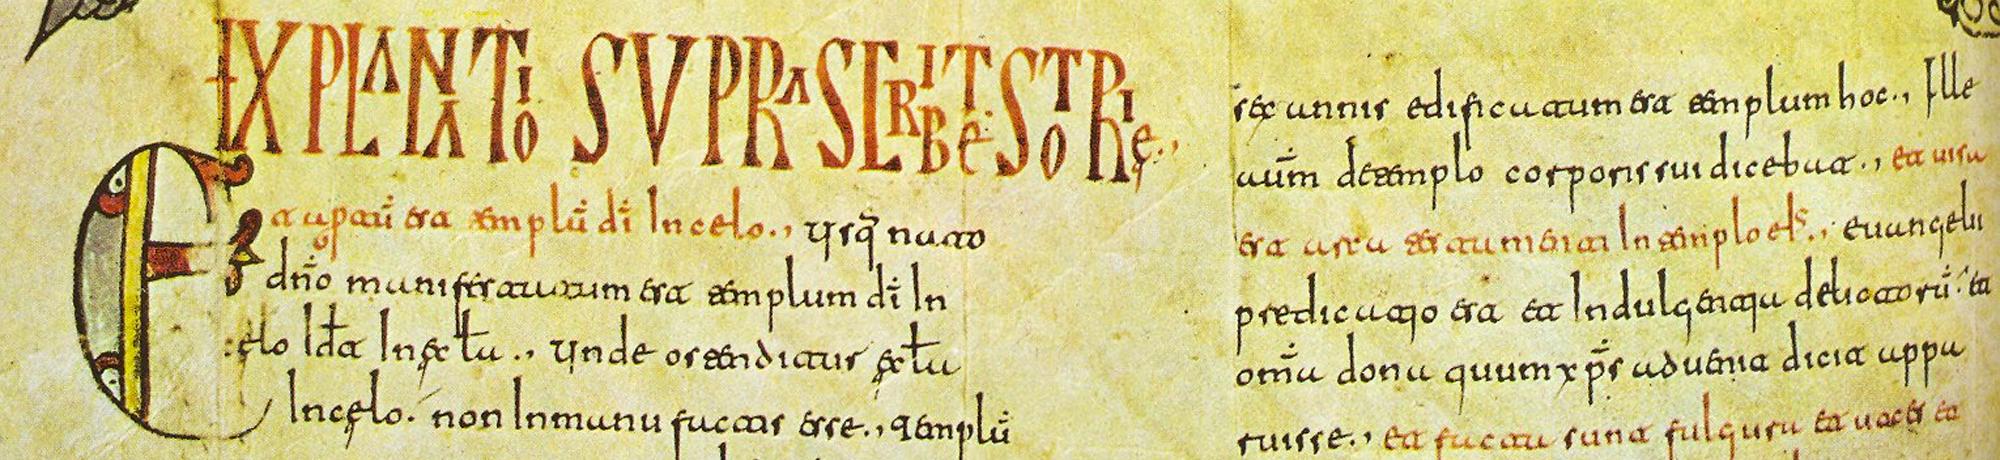 EXPLANATIO SUPRASCRIBTE STORIE.,
Et apertū est templū dī In celo., Usq̄ nato
dn̄o manifestatum est templum dī In
celo Id est In eclā., Unde ostenditur eclā
In celo. non In manu factis esse., templū
sex annis edificatum est templum hoc., Ille
aūm de templo corporis sui dicebat., et visa
est arca testamenti In templo eius., evangelii
predicatio est et Indulgentia delictorū. et
om̄a dona quum xp̄s advenit dicit appa
ruisse., et facta sunt fulgura et voces et